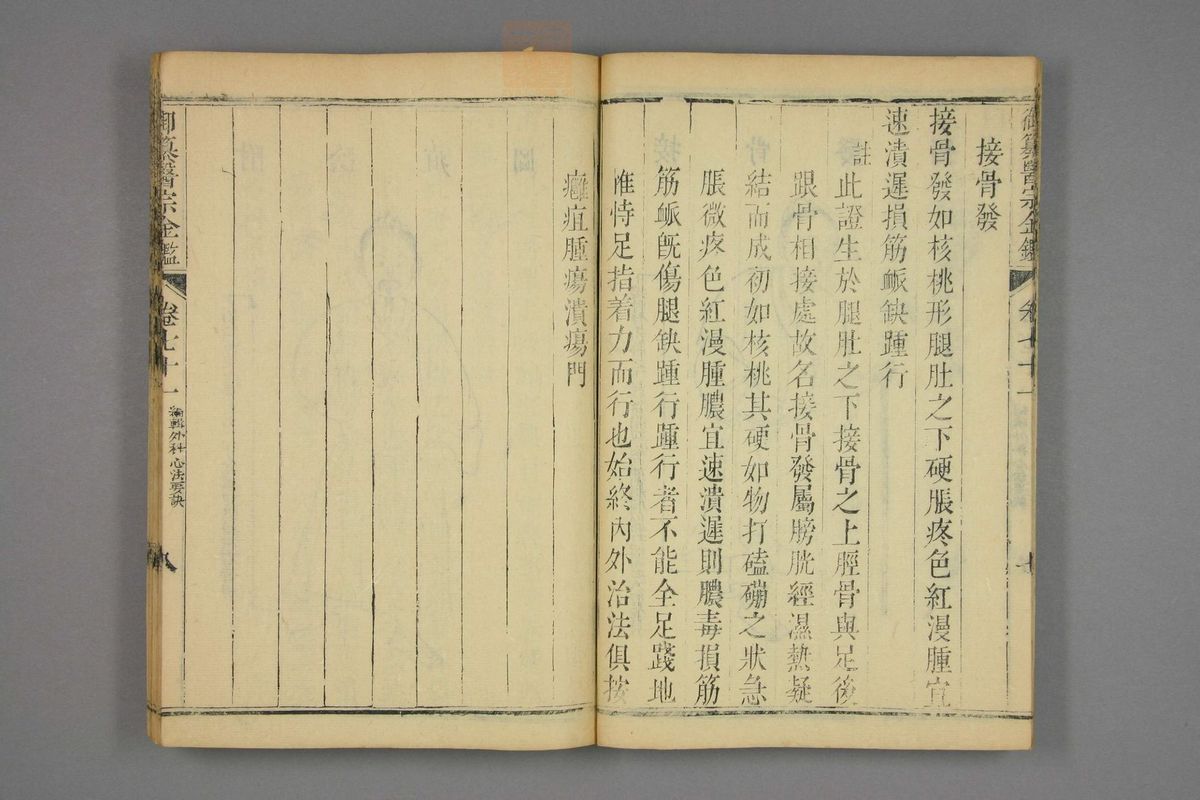 接骨發
接骨發如核桃形腿肚之下硬脹疼色紅漫腫宜
速潰遲損筋脈缺踵行
註此證生於腿肚之下接骨之上脛骨與足後
跟骨相接處故名接骨發屬膀胱經濕熱凝
結而成初如核桃其硬如物打磕硼之狀急
脹微疼色紅漫腫膿宜速潰遲則膿毒損筋
筋脈旣傷腿缺踵行踵行者不能全足踐地
惟恃足指着力而行也始終內外治法俱按
癰疽腫瘍潰瘍門
御纂醫宗金鑑
卷七十一
編輯外科心法要訣
八
御纂醫宗金鑑
卷七十一